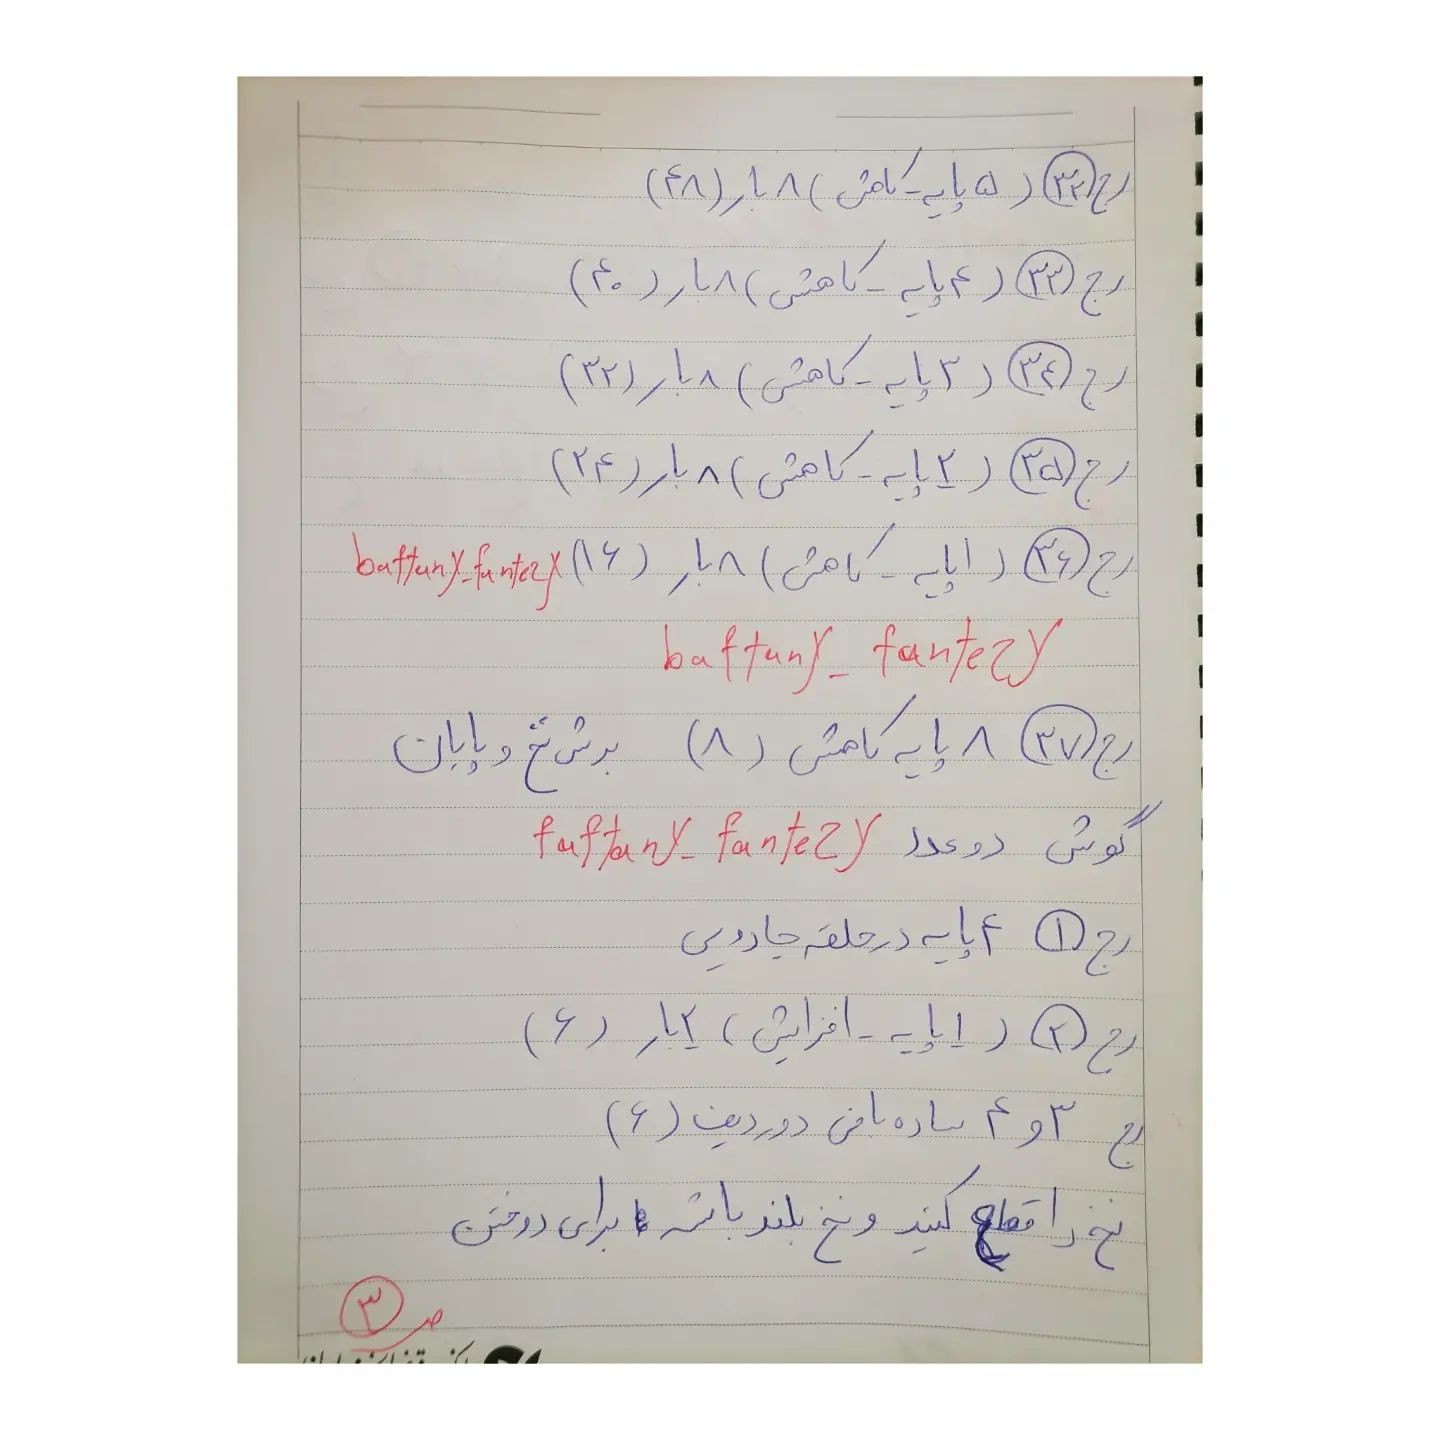 رج ۳۲ (۵ پایه - کاهش) ۸ بار (۴۸)
رج ۳۳ (۴ پایه - کاهش) ۸ بار (۴۰)
رج ۳۴ (۳ پایه - کاهش) ۸ بار (۳۲)
رج ۳۵ (۲ پایه - کاهش) ۸ بار (۲۴)
رج ۳۶ (۱ پایه - کاهش) ۸ بار (۱۶) baftany_fantezy
baftany_fantezy
رج ۳۷ ۸ پایه کاهش (۸) برش نخ و پایان
گوش دو عدد faftany_fantezy
رج ۱ ۴ پایه در حلقه جادویی
رج ۲ (۱ پایه - افزایش) ۲ بار (۶)
رج ۳ و ۴ ساده بافی دو ردیف (۶)
نخ را قطع کنید و نخ بلند باشه برای دوختن
ص ۳